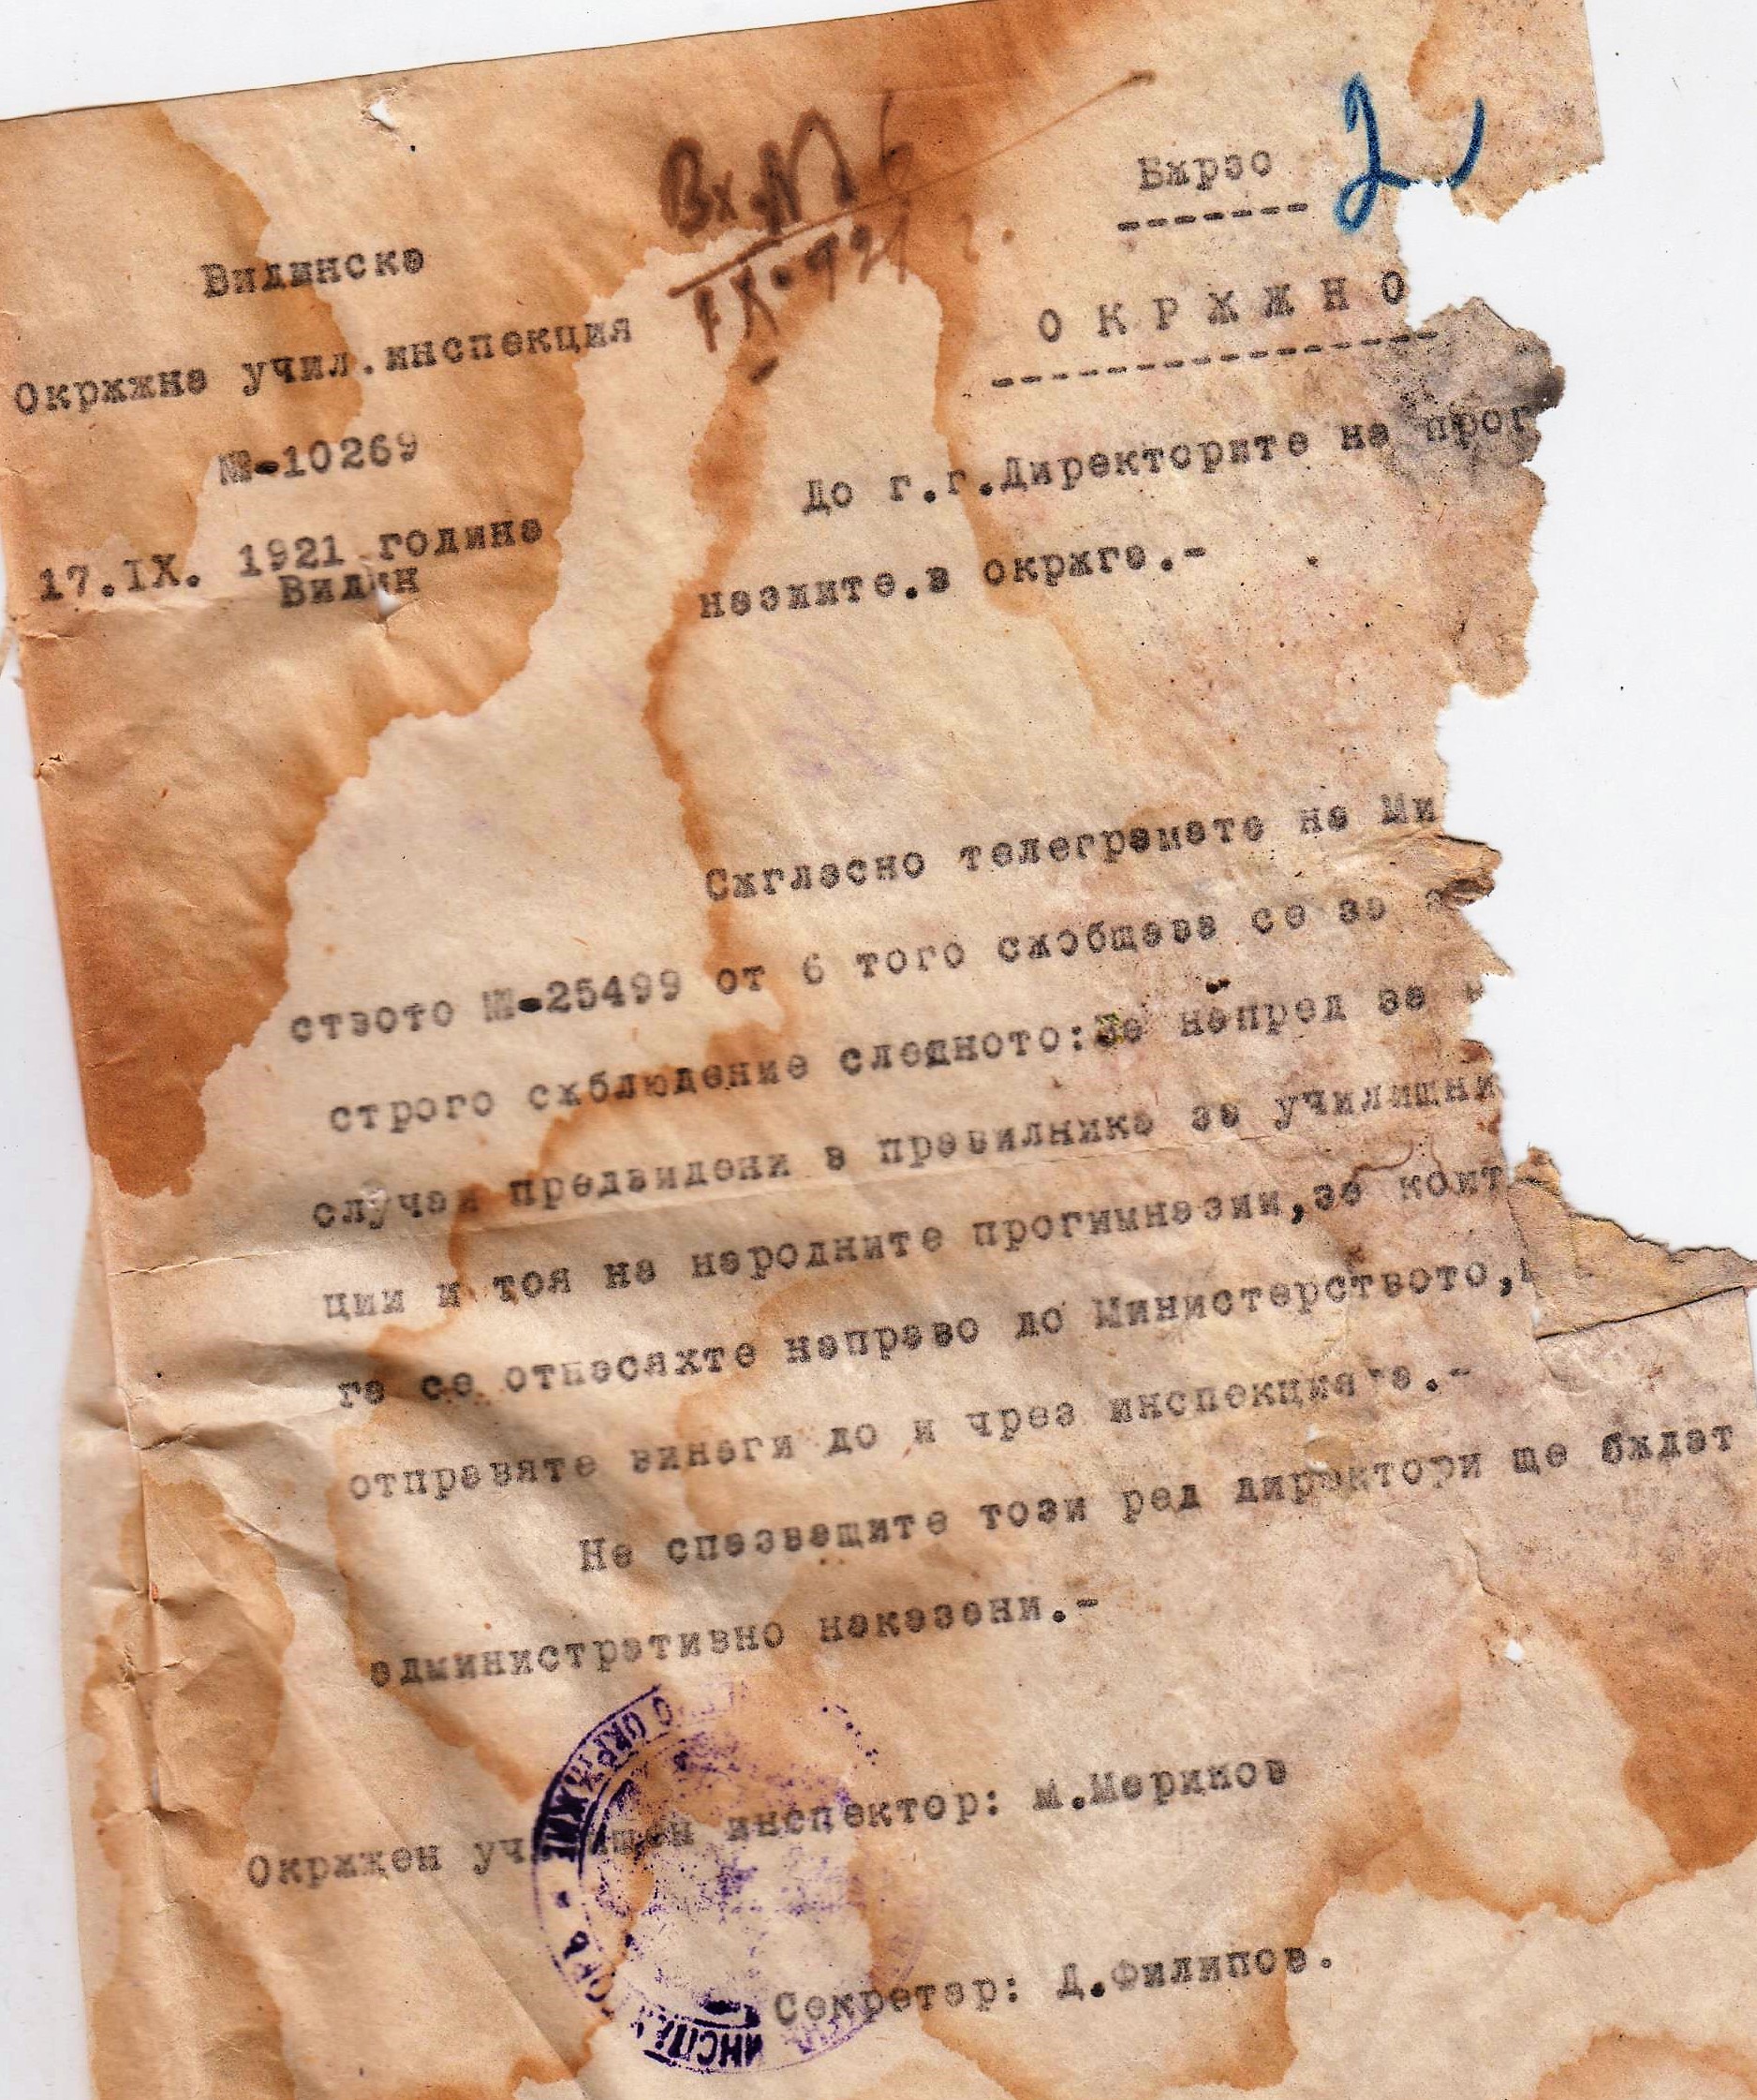 Бѫрзо
2
Вх. №
IX.921 г.
Видинска
Окрѫжна учил.инспекция
№-10269
17.IX. 1921 година
Видин
ОКРѪЖНО
До г.г.Директорите на прог
назиите.в окрѫга.-
Сѫгласно телеграмата на Ми
ството №-25499 от 6 того сѫобщава се за
строго сѫблюдение следното:За напред за
случаи предвидени в правилника за училищни
ции и тоя на народните прогимназии,за коит
га се отнасяхте направо до Министерството,
отправяте винаги до и чрез инспекцията.-
Не спазващите този ред директори ще бѫдат
административно наказани.-
Окрѫжен училищен инспектор: М.Маринов
Секретар: Д.Филипов.